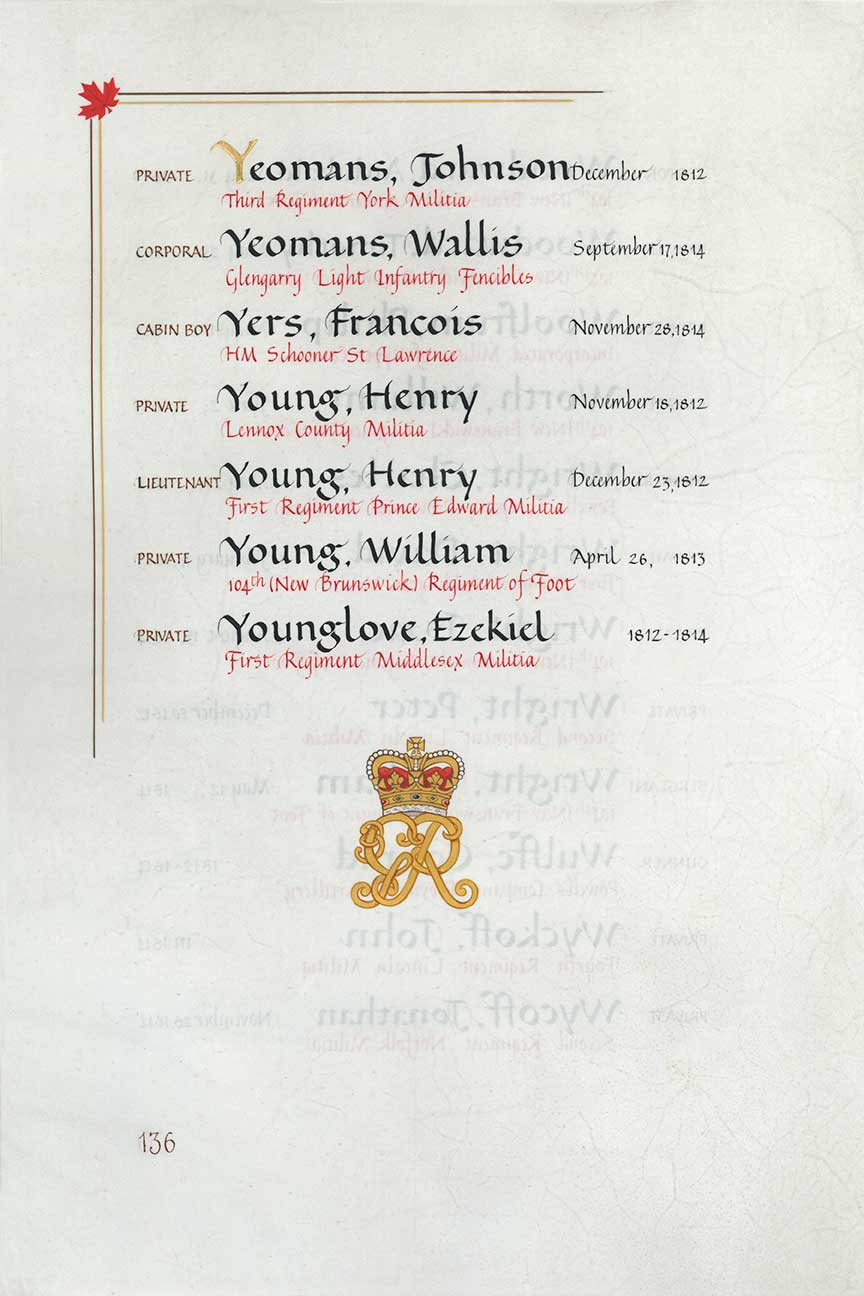 PRIVATE Yeomans, Johnson December 1812
Third Regiment York Militia
CORPORAL Yeomans, Wallis September 17, 1814
Glengarry Light Infantry Fencibles
CABIN BOY Yers, Francois November 28, 1814
HM Schooner St Lawrence
PRIVATE Young, Henry November 18, 1812
Lennox County Militia
LIEUTENANT Young, Henry December 23, 1812
First Regiment Prince Edward Militia
PRIVATE Young, William April 26, 1813
104th (New Brunswick) Regiment of Foot
PRIVATE Younglove, Ezekiel 1812-1814
First Regiment Middlesex Militia
GR
136